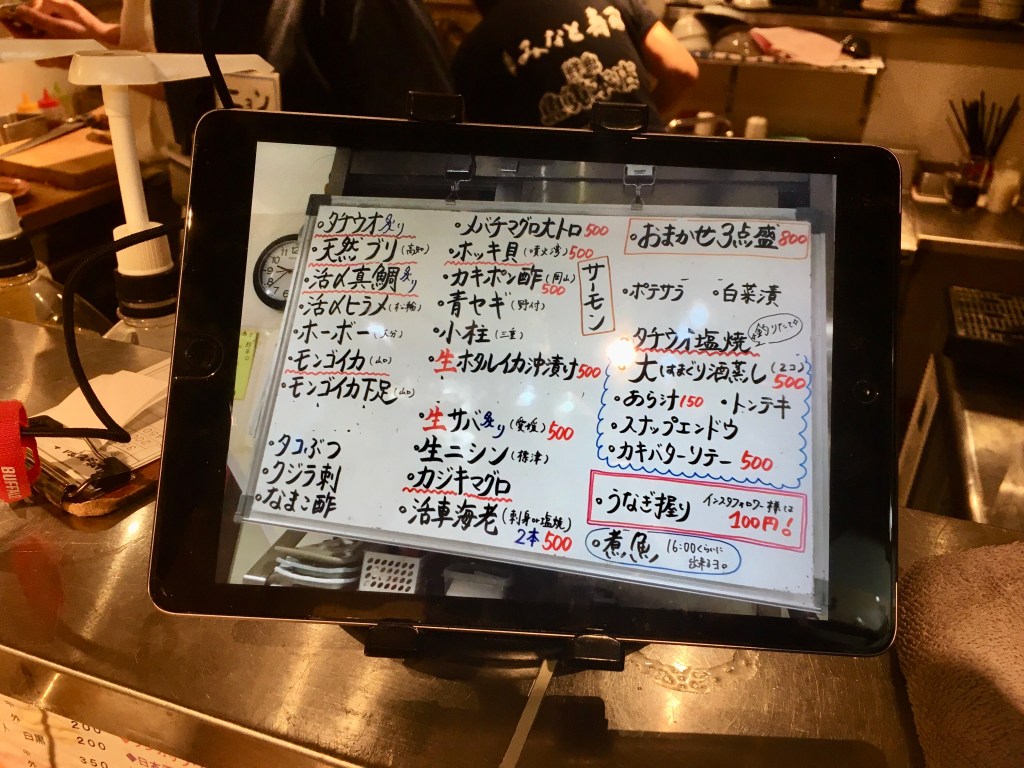 みなと寿司
・タチウオ炙り
・天然ブリ(高知)
・活〆真鯛炙り
・活〆ヒラメ
・ホーボー(大分)
・モンゴイカ(山口)
・モンゴイカ下足(山口)
・タコぶつ
・クジラ刺
・なまこ酢
・メバチマグロ大トロ 500
・ホッキ貝(噴火湾)500
・カキポン酢(岡山)500
・青ヤギ(野付)
・小柱(三重)
・生ホタルイカ沖漬け 500
サーモン
・生サバ炙り(愛媛)500
・生ニシン
・カジキマグロ
・活車海老(刺身or塩焼)
2本500
・おまかせ3点盛 800
・ポテサラ ・白菜漬
・タチウオ塩焼 釣りたて
・大はまぐり酒蒸し(2コ)500
・あら汁150 ・トンテキ
・スナップエンドウ
・カキバターソテー 500
・うなぎ握り インスタフォロワー様は
100円!
・煮魚 16:00くらいに
出来るヨ。
BUFFALO
200
白黒 200
350
◆日本